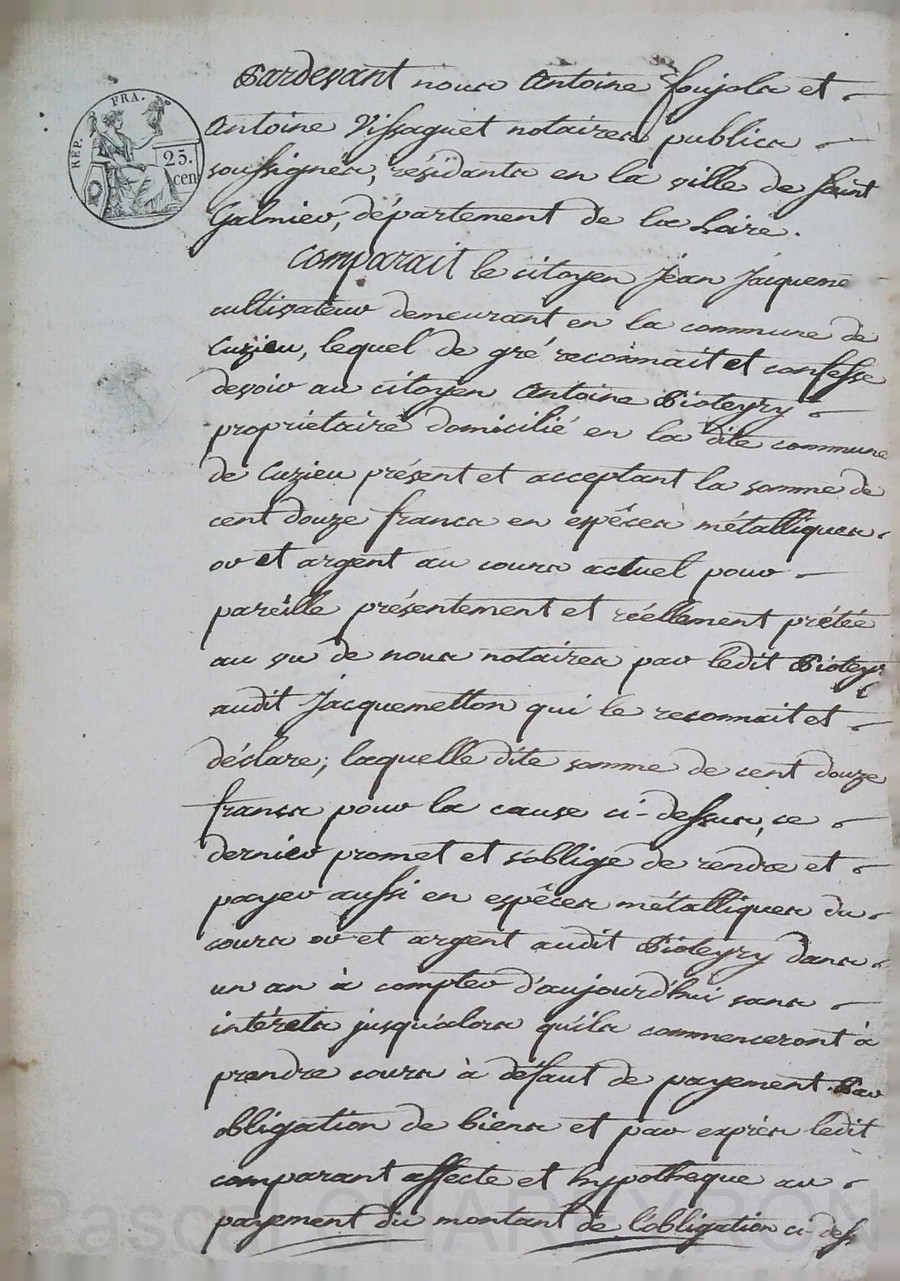 Pardevant nous Antoine Foujols et
Antoine Vissaguet notaires publics
soussignés, résidants en la ville de Saint
Galmier, département de la Loire.
RÉP. FRA.
25.
cen
Comparait le citoyen Jean Jacqueme
cultivateur demeurant en la commune de
Cuzieu, lequel de gré reconnait et confesse
devoir au citoyen Antoine Pioteyry
propriétaire domicilié en la dite commune
de Cuzieu présent et acceptant la somme de
cent douze francs en espêces métalliques
or et argent au cours actuel pour
pareille présentement et réellement prétée
au vu de nous notaires par ledit Pioteyr
audit Jacquemetton qui le reconnait et
déclare; laquelle dite somme de cent douze
francs pour la cause ci-dessus, ce
dernier promet et s'oblige de rendre et
payer aussi en espêces métalliques du
cours or et argent audit Pioteyry dans
un an à compter d'aujourd'hui sans
intérets jusqu'alors qu'ils commenceront à
prendre cours à défaut de payement. Par
obligation de biens et par exprès ledit
comparant affecte et hypotheque au
payement du montant de l'obligation ci-dess
Pascal CHARLEYRON